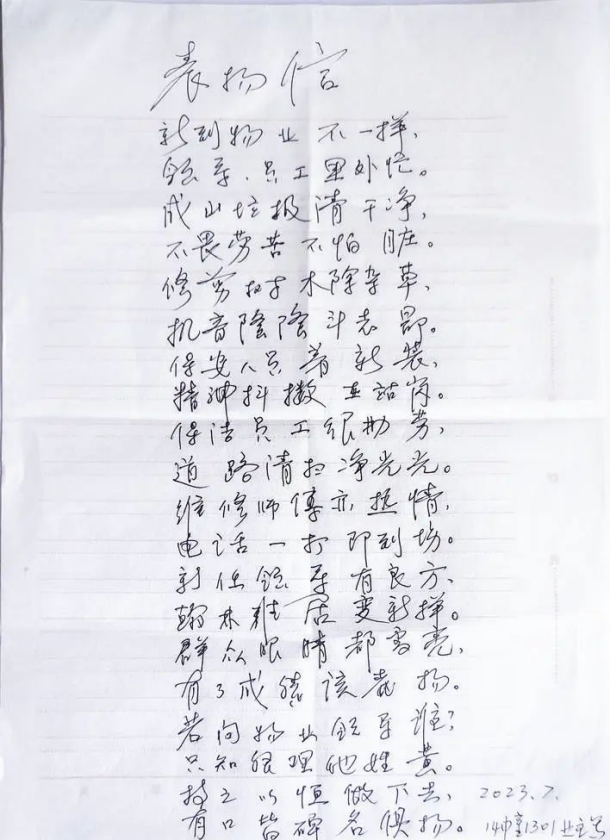 表扬信
新到物业不一样,
领导、员工里外忙。
成山垃圾清干净,
不畏劳苦不怕脏。
修剪树木除杂草,
机音隆隆斗志昂。
保安人员着新装,
精神抖擞在站岗。
保洁员工很勤劳,
道路清扫净光光。
维修师傅亦热情,
电话一打即到场。
新任领导有良方,
翰林雅居变新样。
群众眼睛都雪亮,
有了成绩该表扬。
若问物业领导谁?
只知经理他姓黄。
持之以恒做下去,
有口皆碑名俱扬。
2023.7.
14幢1301业主